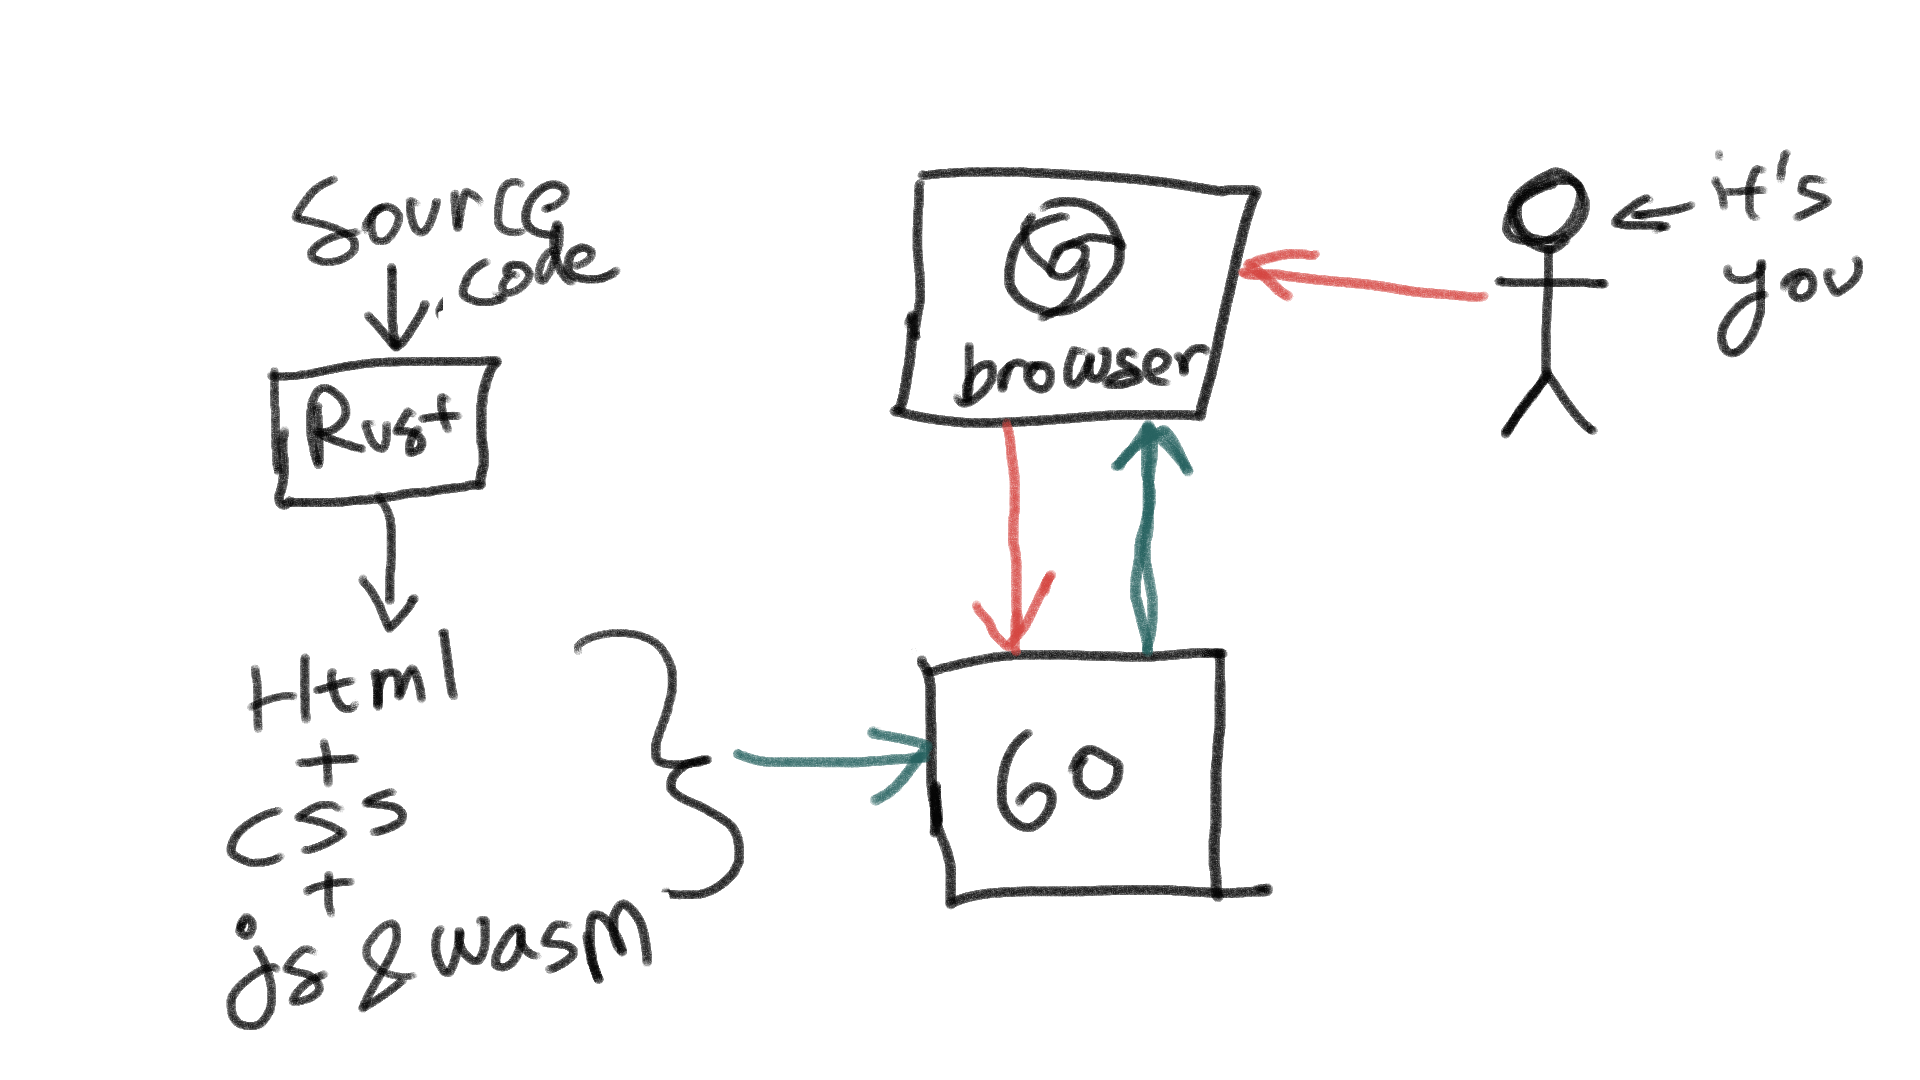 Source
code
Rust
Html
+
css
+
js & wasm
browser
GO
it's
you